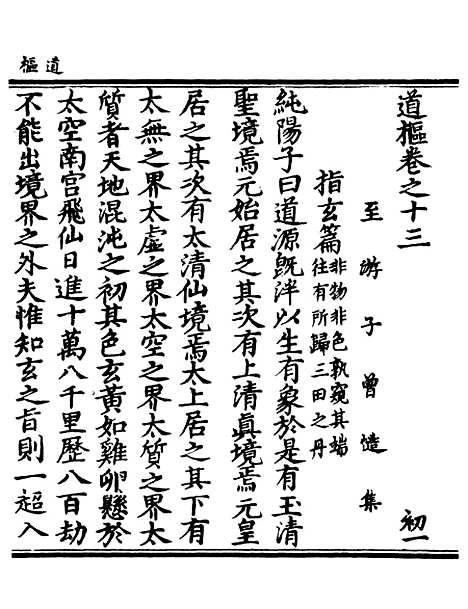 道樞
道樞卷之十三 初一
至游子曾慥集
指玄篇 非物非色孰窺其端
往有所歸三田之丹
純陽子曰道源既泮以生有象於是有玉清
聖境焉元始居之其次有上清眞境焉元皇
居之其次有太清仙境焉太上居之其下有
太無之界太虛之界太空之界太質之界太
質者天地混沌之初其色玄黃如雞卵懸於
太空南宮飛仙日進十萬八千里歷八百劫
不能出境界之外夫惟知玄之旨則一超入